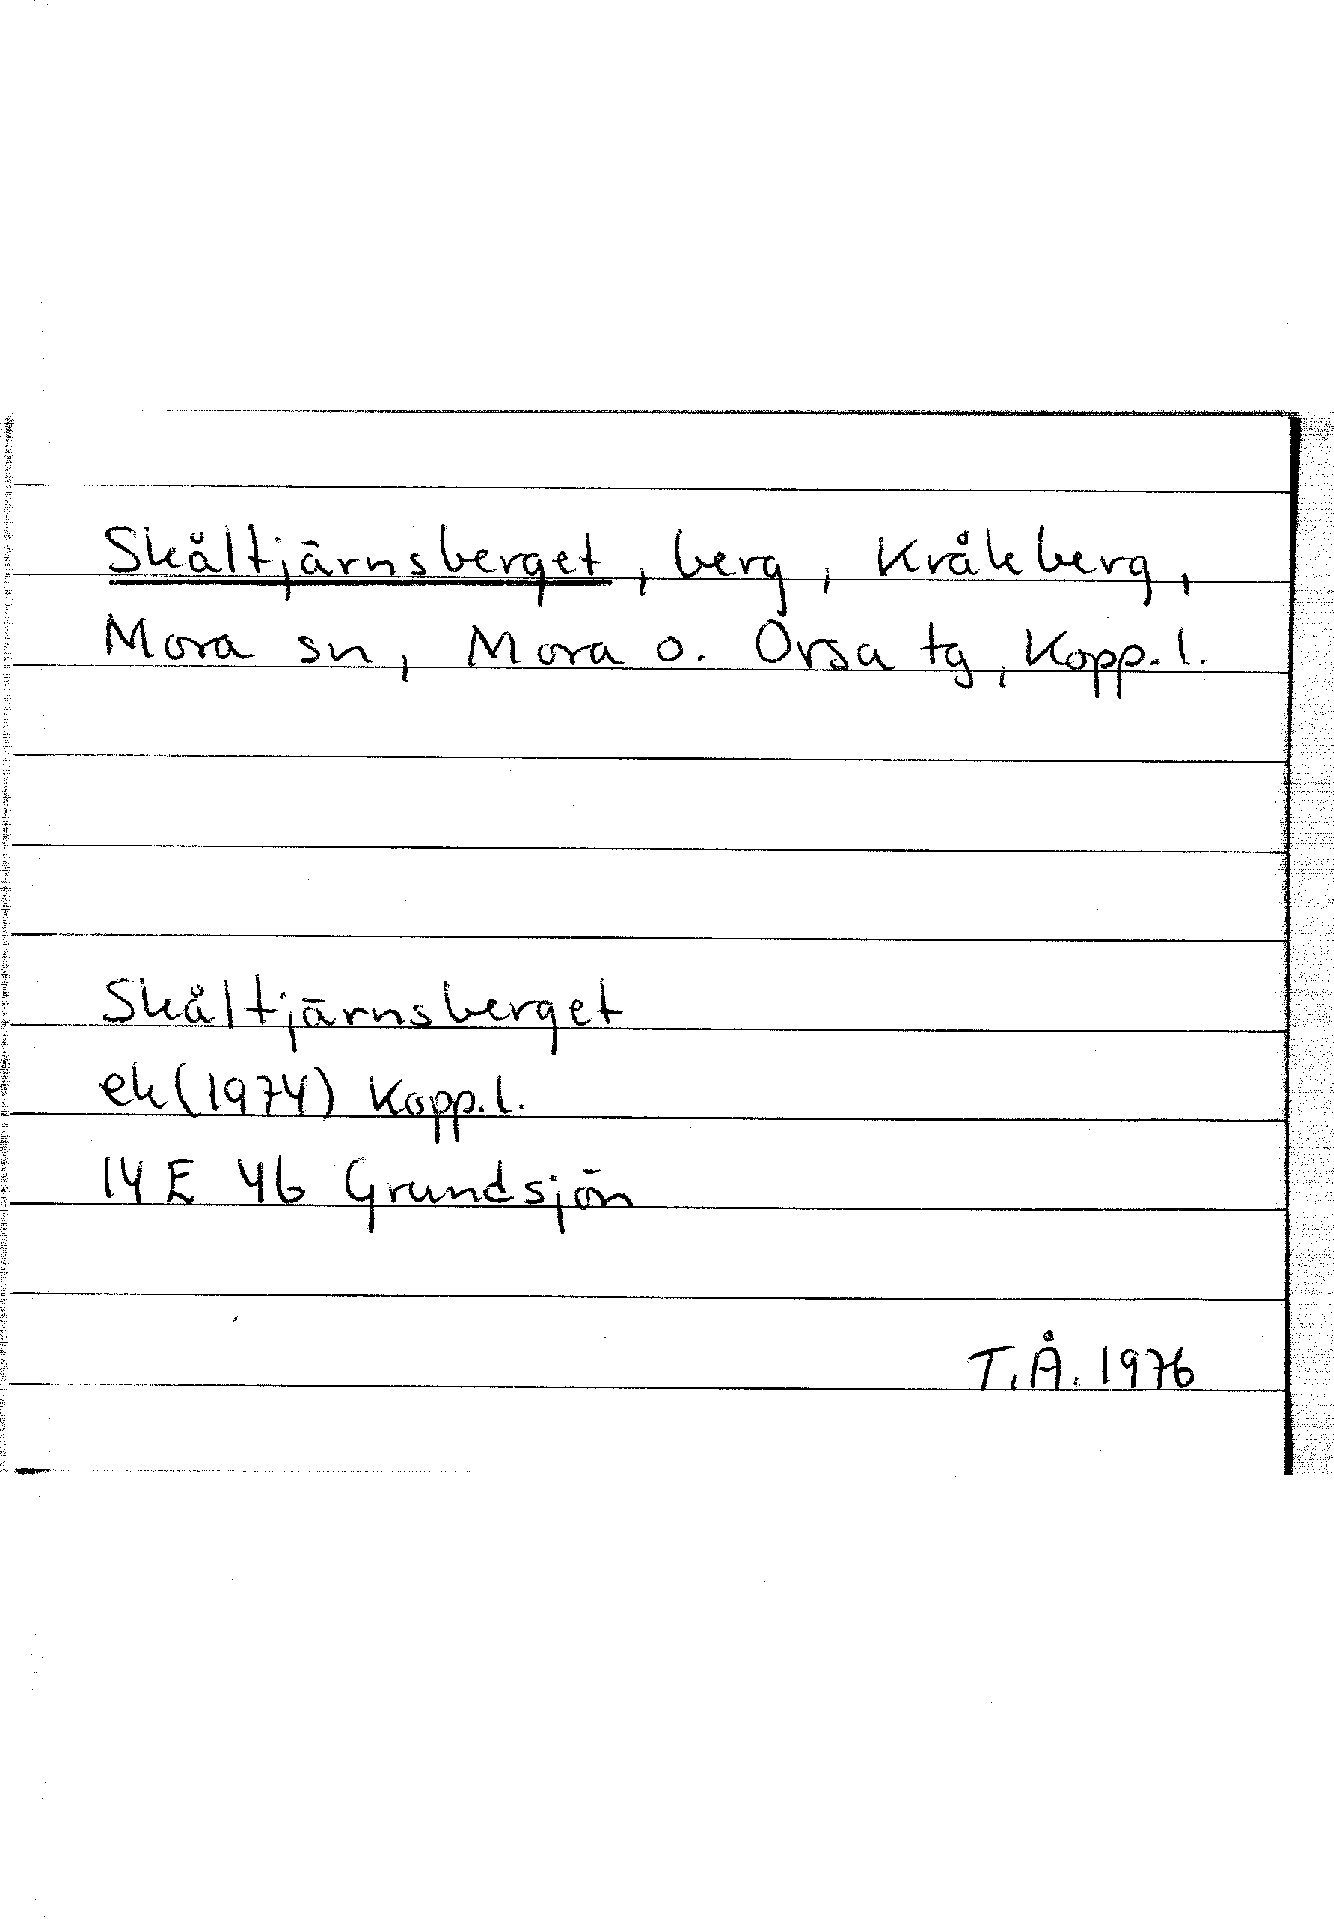 Skåltjärnsberget, berg, Kråkberg,
Mora sn, Mora o. Orsa tg, Kopp. l.
Skåltjärnsberget
ek (1974) Kopp. l.
14 E 4b Grundsjön
T.Å. 1976